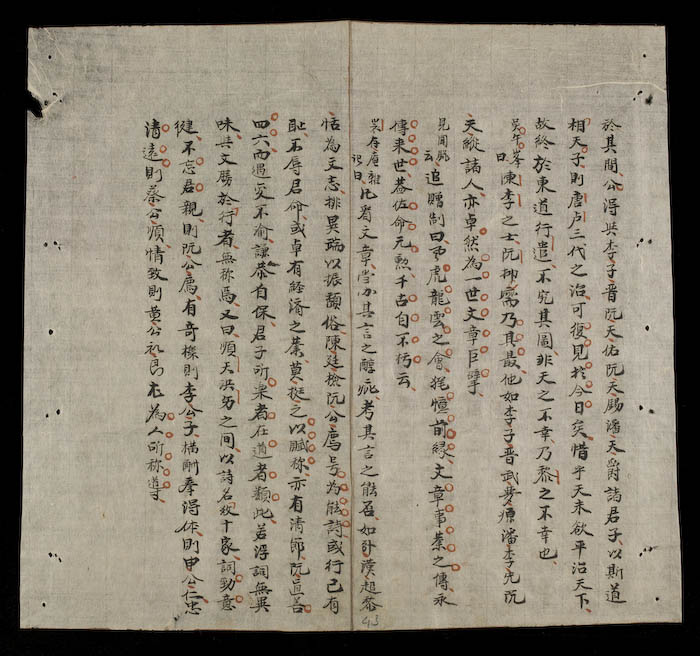 於其間公得與李子晉阮天佑阮天錫潘天爵諸君子以斯道
相天子則唐虞三代之治可復見於今日矣惜乎天未欲平治天下
故終於東道行遣不究其圖非天之不幸乃黎之不幸也
曰陳李之士阮抑齋乃其最他如李子晉武夢源潘李先阮
天縱諸人亦卓然為一世文章巨擘
見聞 云追贈制曰風虎龍雲之會 前緣文章事業之傳永
傳来世 佐命元勲千古自不朽云
記曰 比看文章 其言之醇疵考其言之能否如 超 
恬為文志排異端以振頹俗陳廷檢阮公膺号為能詩或行已有
耻不辱君命或卓有経濟之業莫挺之以賦称亦有清節阮直善
四六而遇 不渝謙恭自保君子所 者在道者類此若浮詞無異
味其文勝於行者無称焉又曰順天洪 之間以詩名 十家詞勁意
健不忘君親則阮公廌有奇標則李公子構 得体則申公仁忠
清遠則蔡公順情致則黄公 昂 為人所称 
43